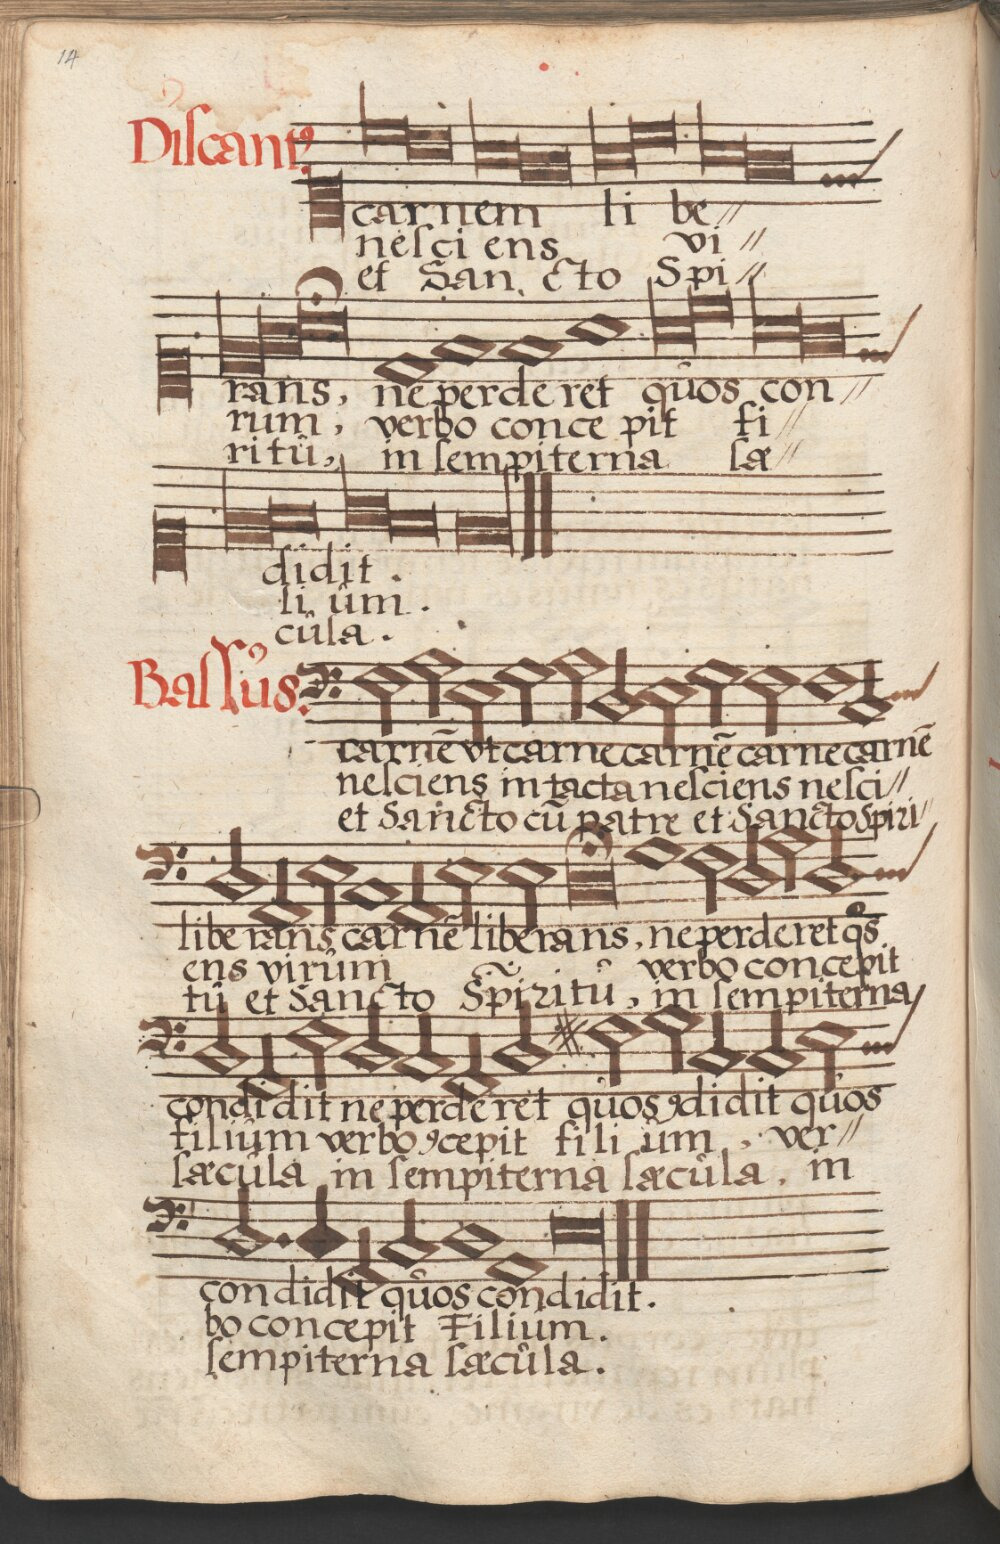 14
Discant9.
carnem li be //
nesciens vi //
et San cto Spi //
rans, ne perde ret quos con //
rum, verbo conce pit fi //
ritû, in sempiterna sæ //
didit.
li um.
cula.
Bassus.
carnē vt carne carnē carne carnē
nesciens intacta nesciens nesci //
et Sancto cū patre et Sancto Spiri //
libe rans carnē liberans, ne perderet qs
ens virum verbo concepit
tû et Sancto Spiritû, in sempiterna
condidit ne perderet quos 9didit quos
filium verbo 9cepit fili um, ver //
sæcula in sempiterna sæcula, in
condidit quos condidit.
bo concepit Filium.
sempiterna sæcula.